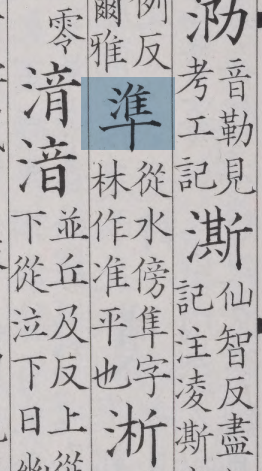 泐
音勒見
考工記
澌
仙智反盡
記注凌澌
例反
爾雅
準
從水傍隼字
林作准平也
淅
零
湇湆
並丘及反上從
下從泣下日幽